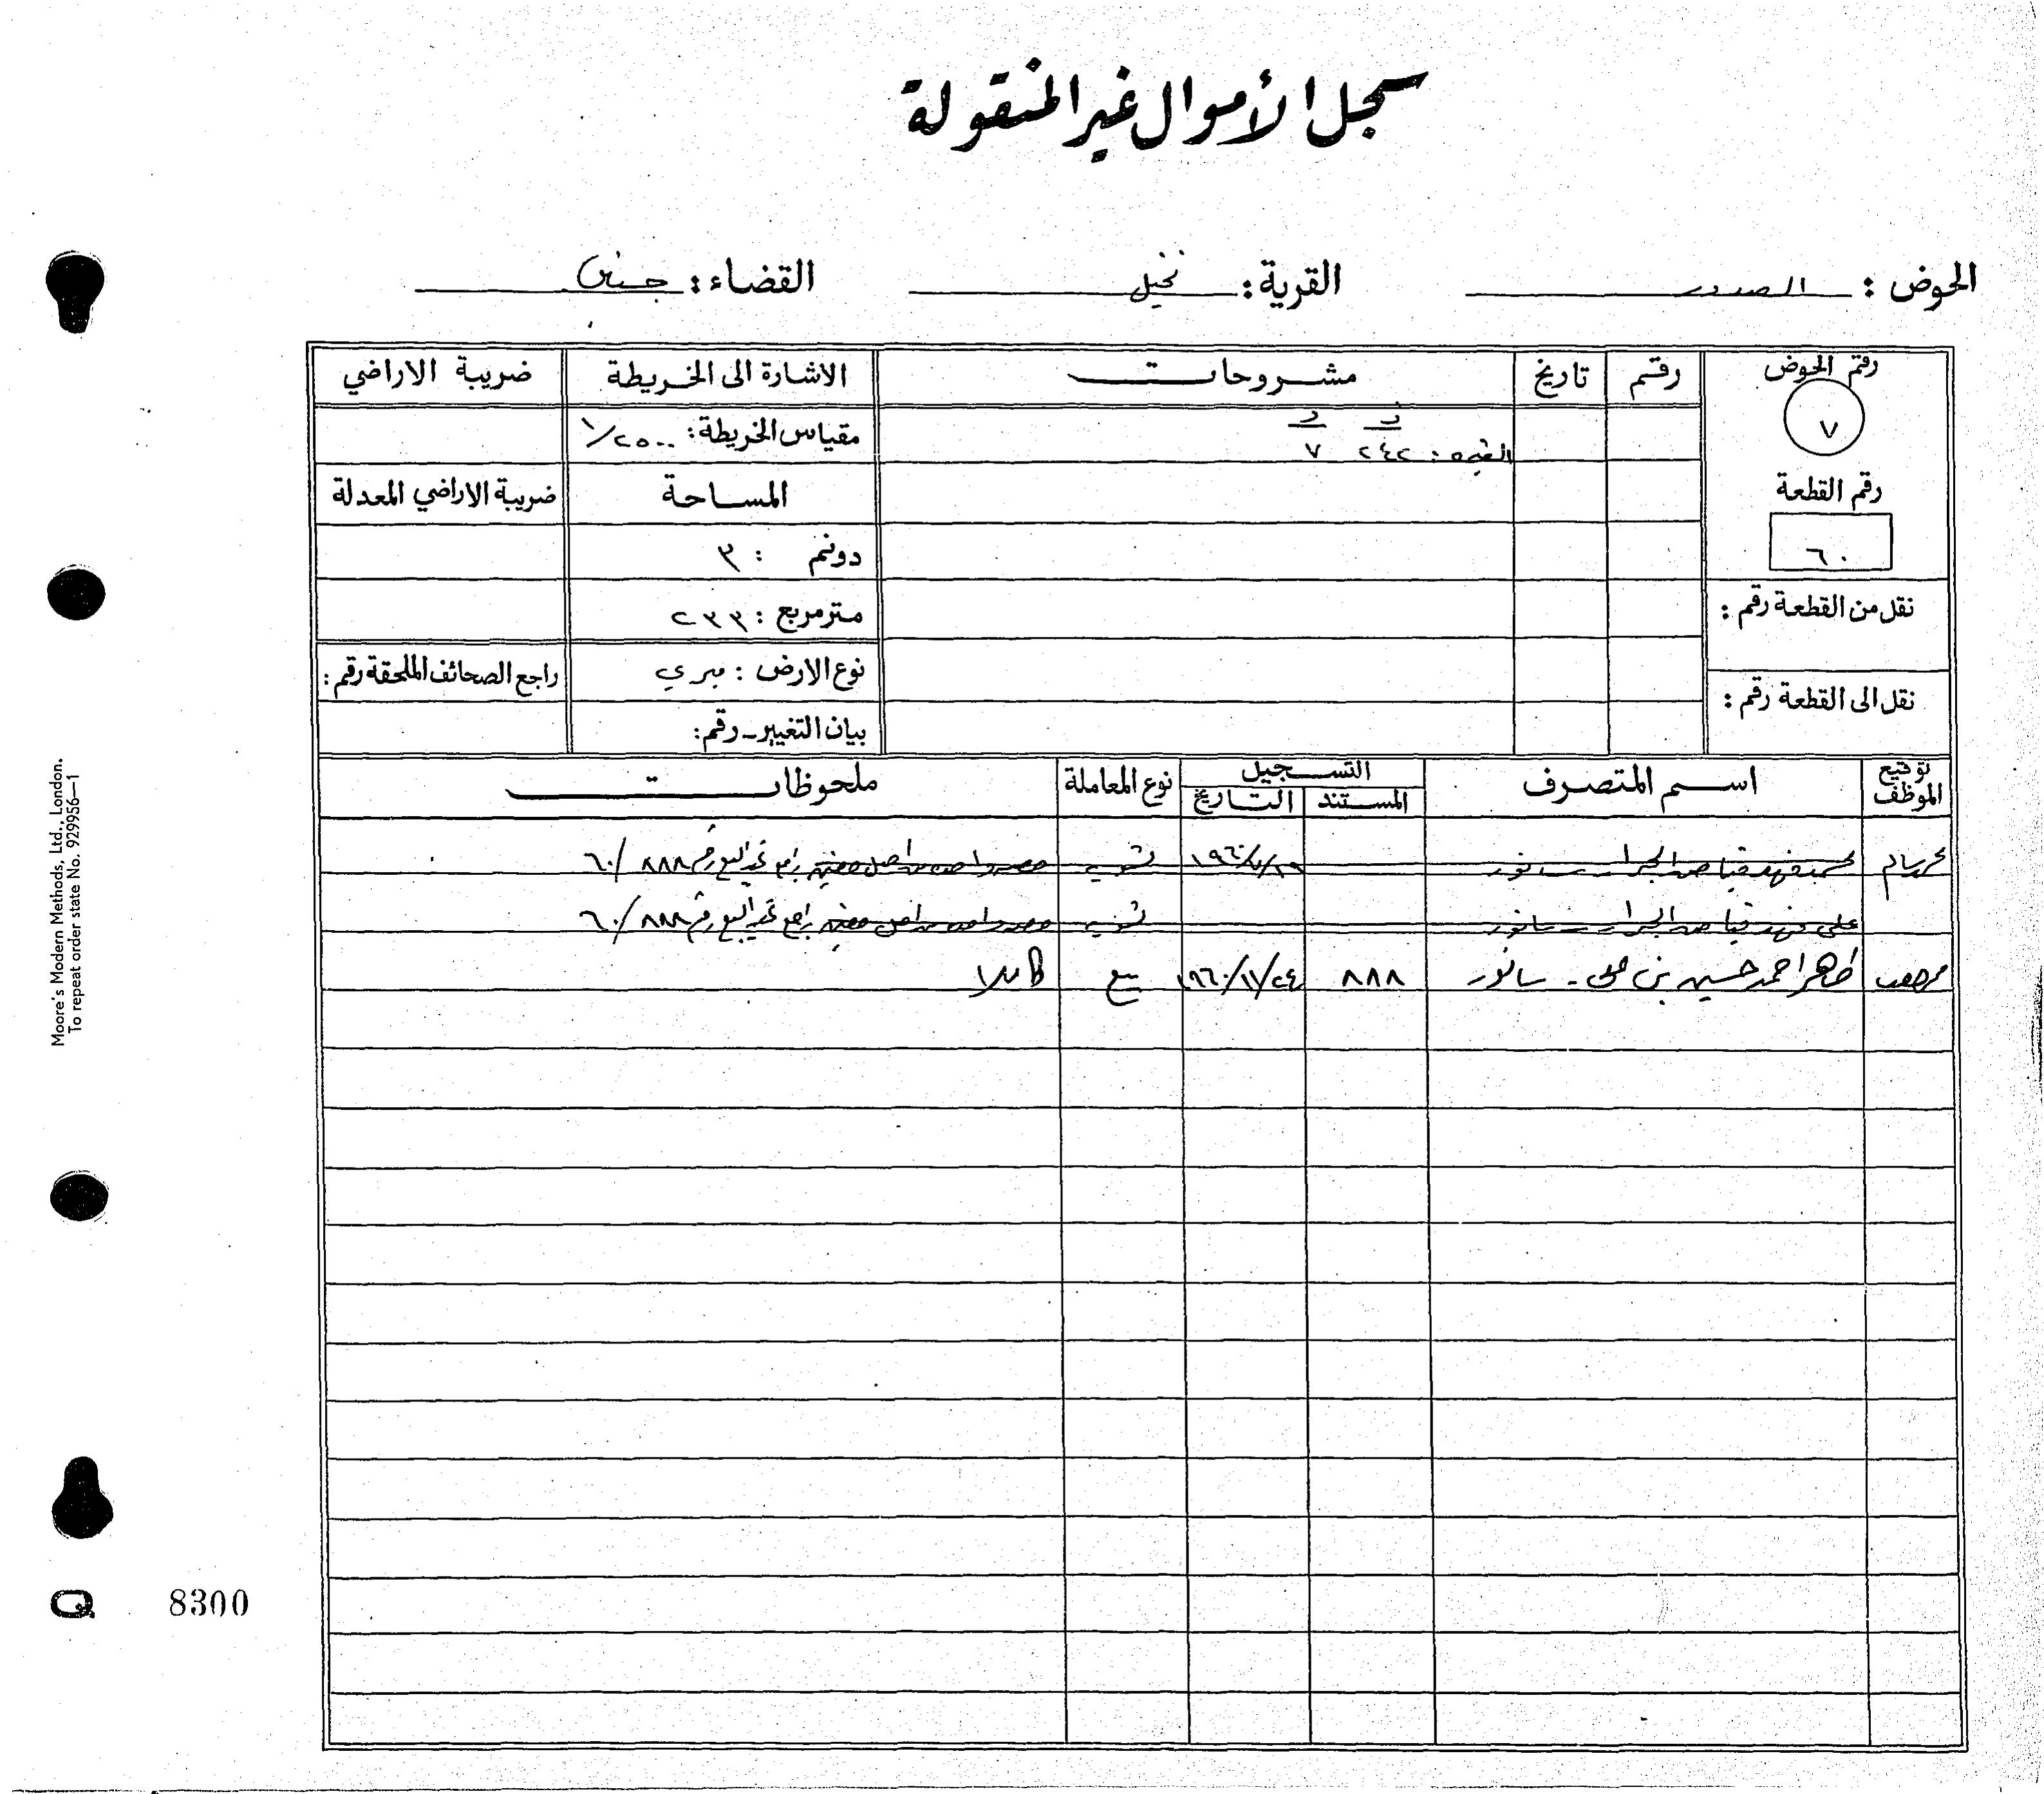 سجل الأموال غير المنقولة
الحوض : الصدور القرية : نخيل القضاء : جنين
رقم الحوض رقم تاريخ مشروحات الاشارة الى الخريطة ضريبة الاراضي
٧ ٢٤٢ ٧ مقياس الخريطة : ١/٢٥٠٠
رقم القطعة المساحة ضريبة الاراضي المعدلة
٦٠ دونم : ٣
نقل من القطعة رقم : متر مربع : ٢٣٣
نوع الارض : ميري راجع الصحائف الملحقة رقم :
نقل الى القطعة رقم : بيان التغيير - رقم :
توقيع الموظف اسم المتصرف التسجيل نوع المعاملة ملحوظات
المستند التاريخ
محمد فهد الجرار - سانور تسوية راجع عقد البيع رقم ٨٨٨ /٦٠
علي فهد الجرار - سانور تسوية راجع عقد البيع رقم ٨٨٨ /٦٠
ظاهر احمد حسين بن علي - سانور ٨٨٨ ٢٤/١١/١٩٦٠ بيع كاملا
Moore's Modern Methods, Ltd., London.
To repeat order state No. 929956—1
Q 8300